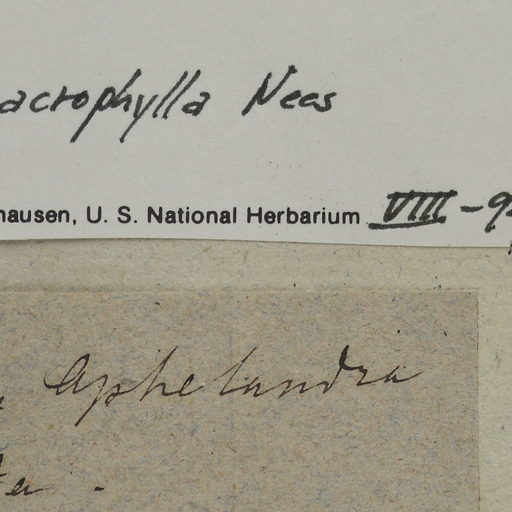 acrophylla Nees
hausen, U. S. National Herbarium VIII-9
Aphelandra